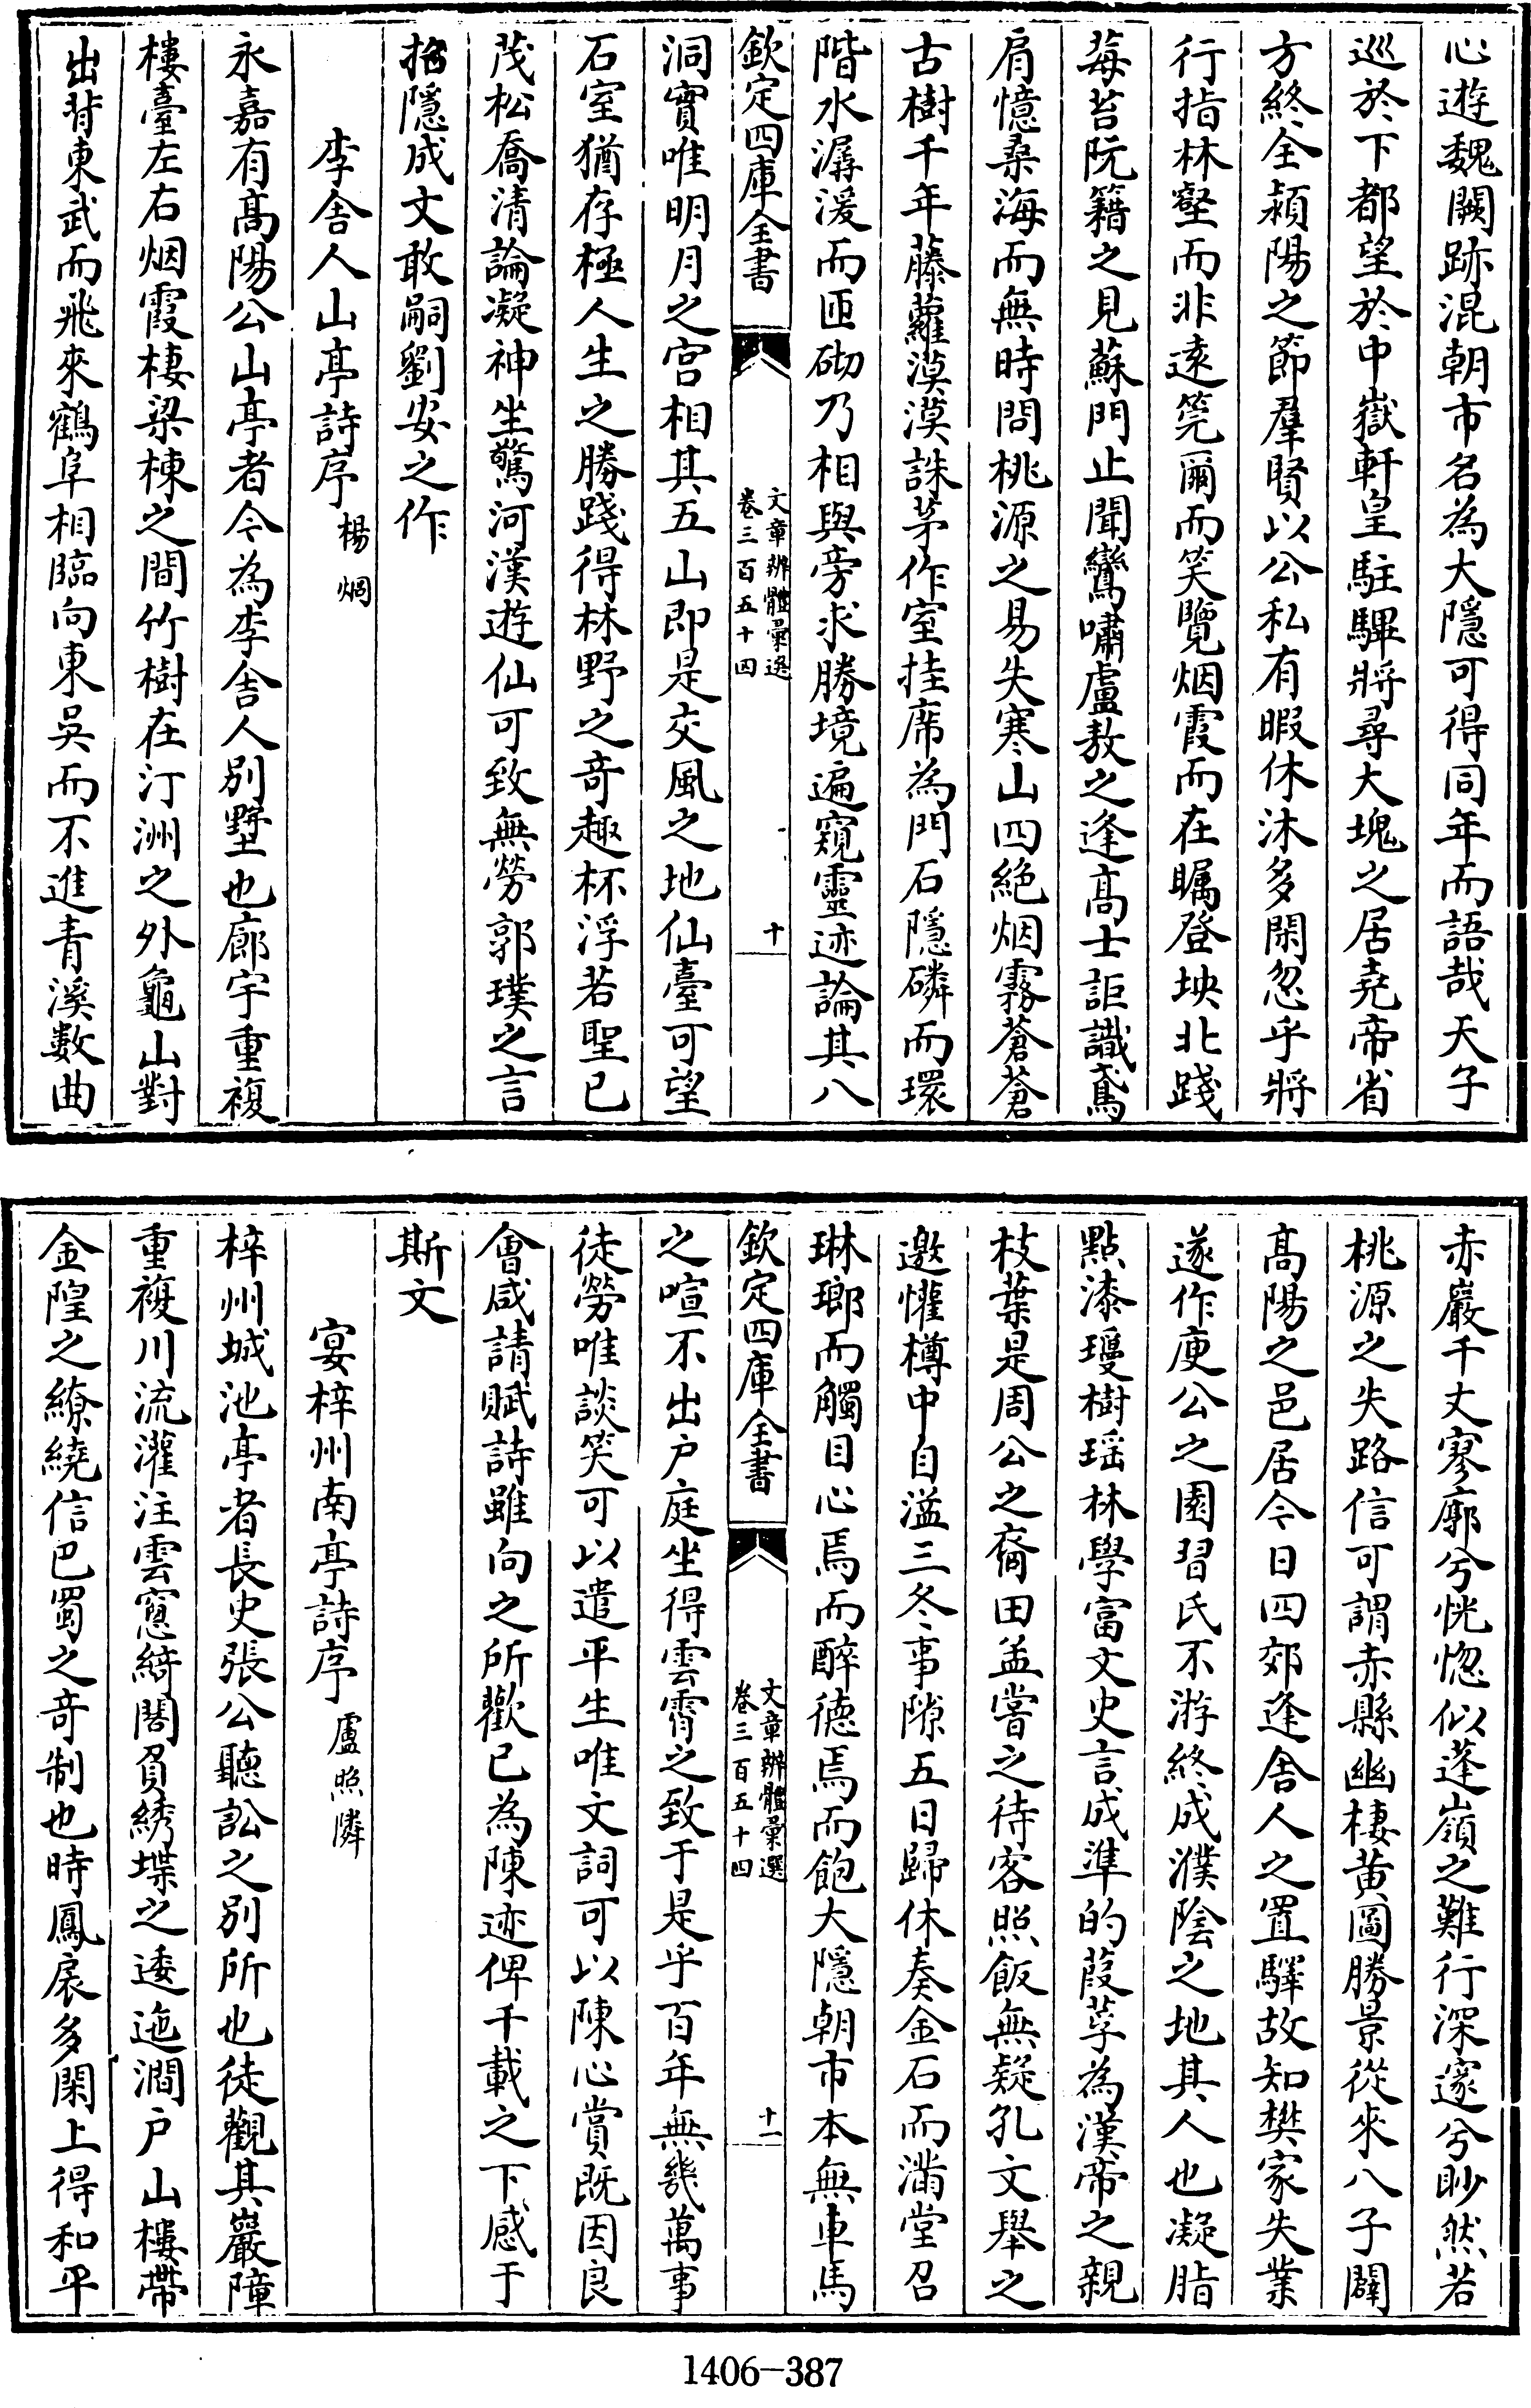 心遊魏闕跡混朝市名為大隱可得同年而語哉天子
巡於下都望於中嶽軒皇駐驆將尋大塊之居堯帝省
方終全潁陽之節羣賢以公私有暇休沐多閑忽乎將
行指林壑而非遠筦爾而笑覽烟霞而在矚登坱北踐
莓苔阮籍之見蘇門止聞鸞嘯盧敖之逢髙士詎識鳶
肩憶桑海而無時問桃源之易失寒山四絶烟霧蒼蒼
古樹千年藤蘿漠漠誅茅作室挂席為門石隱磷而環
階水潺湲而匝砌乃相與旁求勝境遍窺靈迹論其八
欽定四庫全書
文章辨體彙選
卷三百五十四
十
洞寳唯明月之宫相其五山即是交風之地仙臺可望
石室猶存極人生之勝踐得林野之竒趣杯浮若聖已
茂松喬清論凝神坐驚河漢遊仙可致無勞郭璞之言
招隱成文敢嗣劉安之作
李舍人山亭詩序 楊烱
永嘉有髙陽公山亭者今為李舍人别墅也廊宇重複
樓臺左右烟霞棲梁棟之間竹樹在汀洲之外龜山對
出背東武而飛來鶴阜相臨向東吳而不進青溪數曲
赤巖千丈寥廓兮恍惚似蓬嶺之難行深邃兮眇然若
桃源之失路信可謂赤縣幽棲黄圖勝景從來八子闢
髙陽之邑居今日四郊逢舍人之置驛故知樊家失業
遂作庾公之園習氏不游終成濮陰之地其人也凝脂
點漆瓊樹瑶林學富文史言成準的葭莩為漢帝之親
枝葉是周公之裔田孟嘗之待客照飯無疑孔文舉之
邀懽樽中自溢三冬事隙五日歸休奏金石而滿堂召
琳瑯而觸目心焉而醉德焉而飽大隱朝市本無車馬
欽定四庫全書
文章辨體彙選
卷三百五十四
十一
之喧不出户庭坐得雲霄之致于是乎百年無幾萬事
徒勞唯談笑可以遣平生唯文詞可以陳心賞既因良
會咸請賦詩雖向之所歡已為陳迹俾千載之下感于
斯文
宴梓州南亭詩序 盧照隣
梓州城池亭者長史張公聽訟之别所也徒觀其巖障
重複川流灌注雲窻綺閣負綉堞之逶迤澗户山樓帶
金隍之繚繞信巴蜀之竒制也時鳳扆多閑上得和平
1406-387